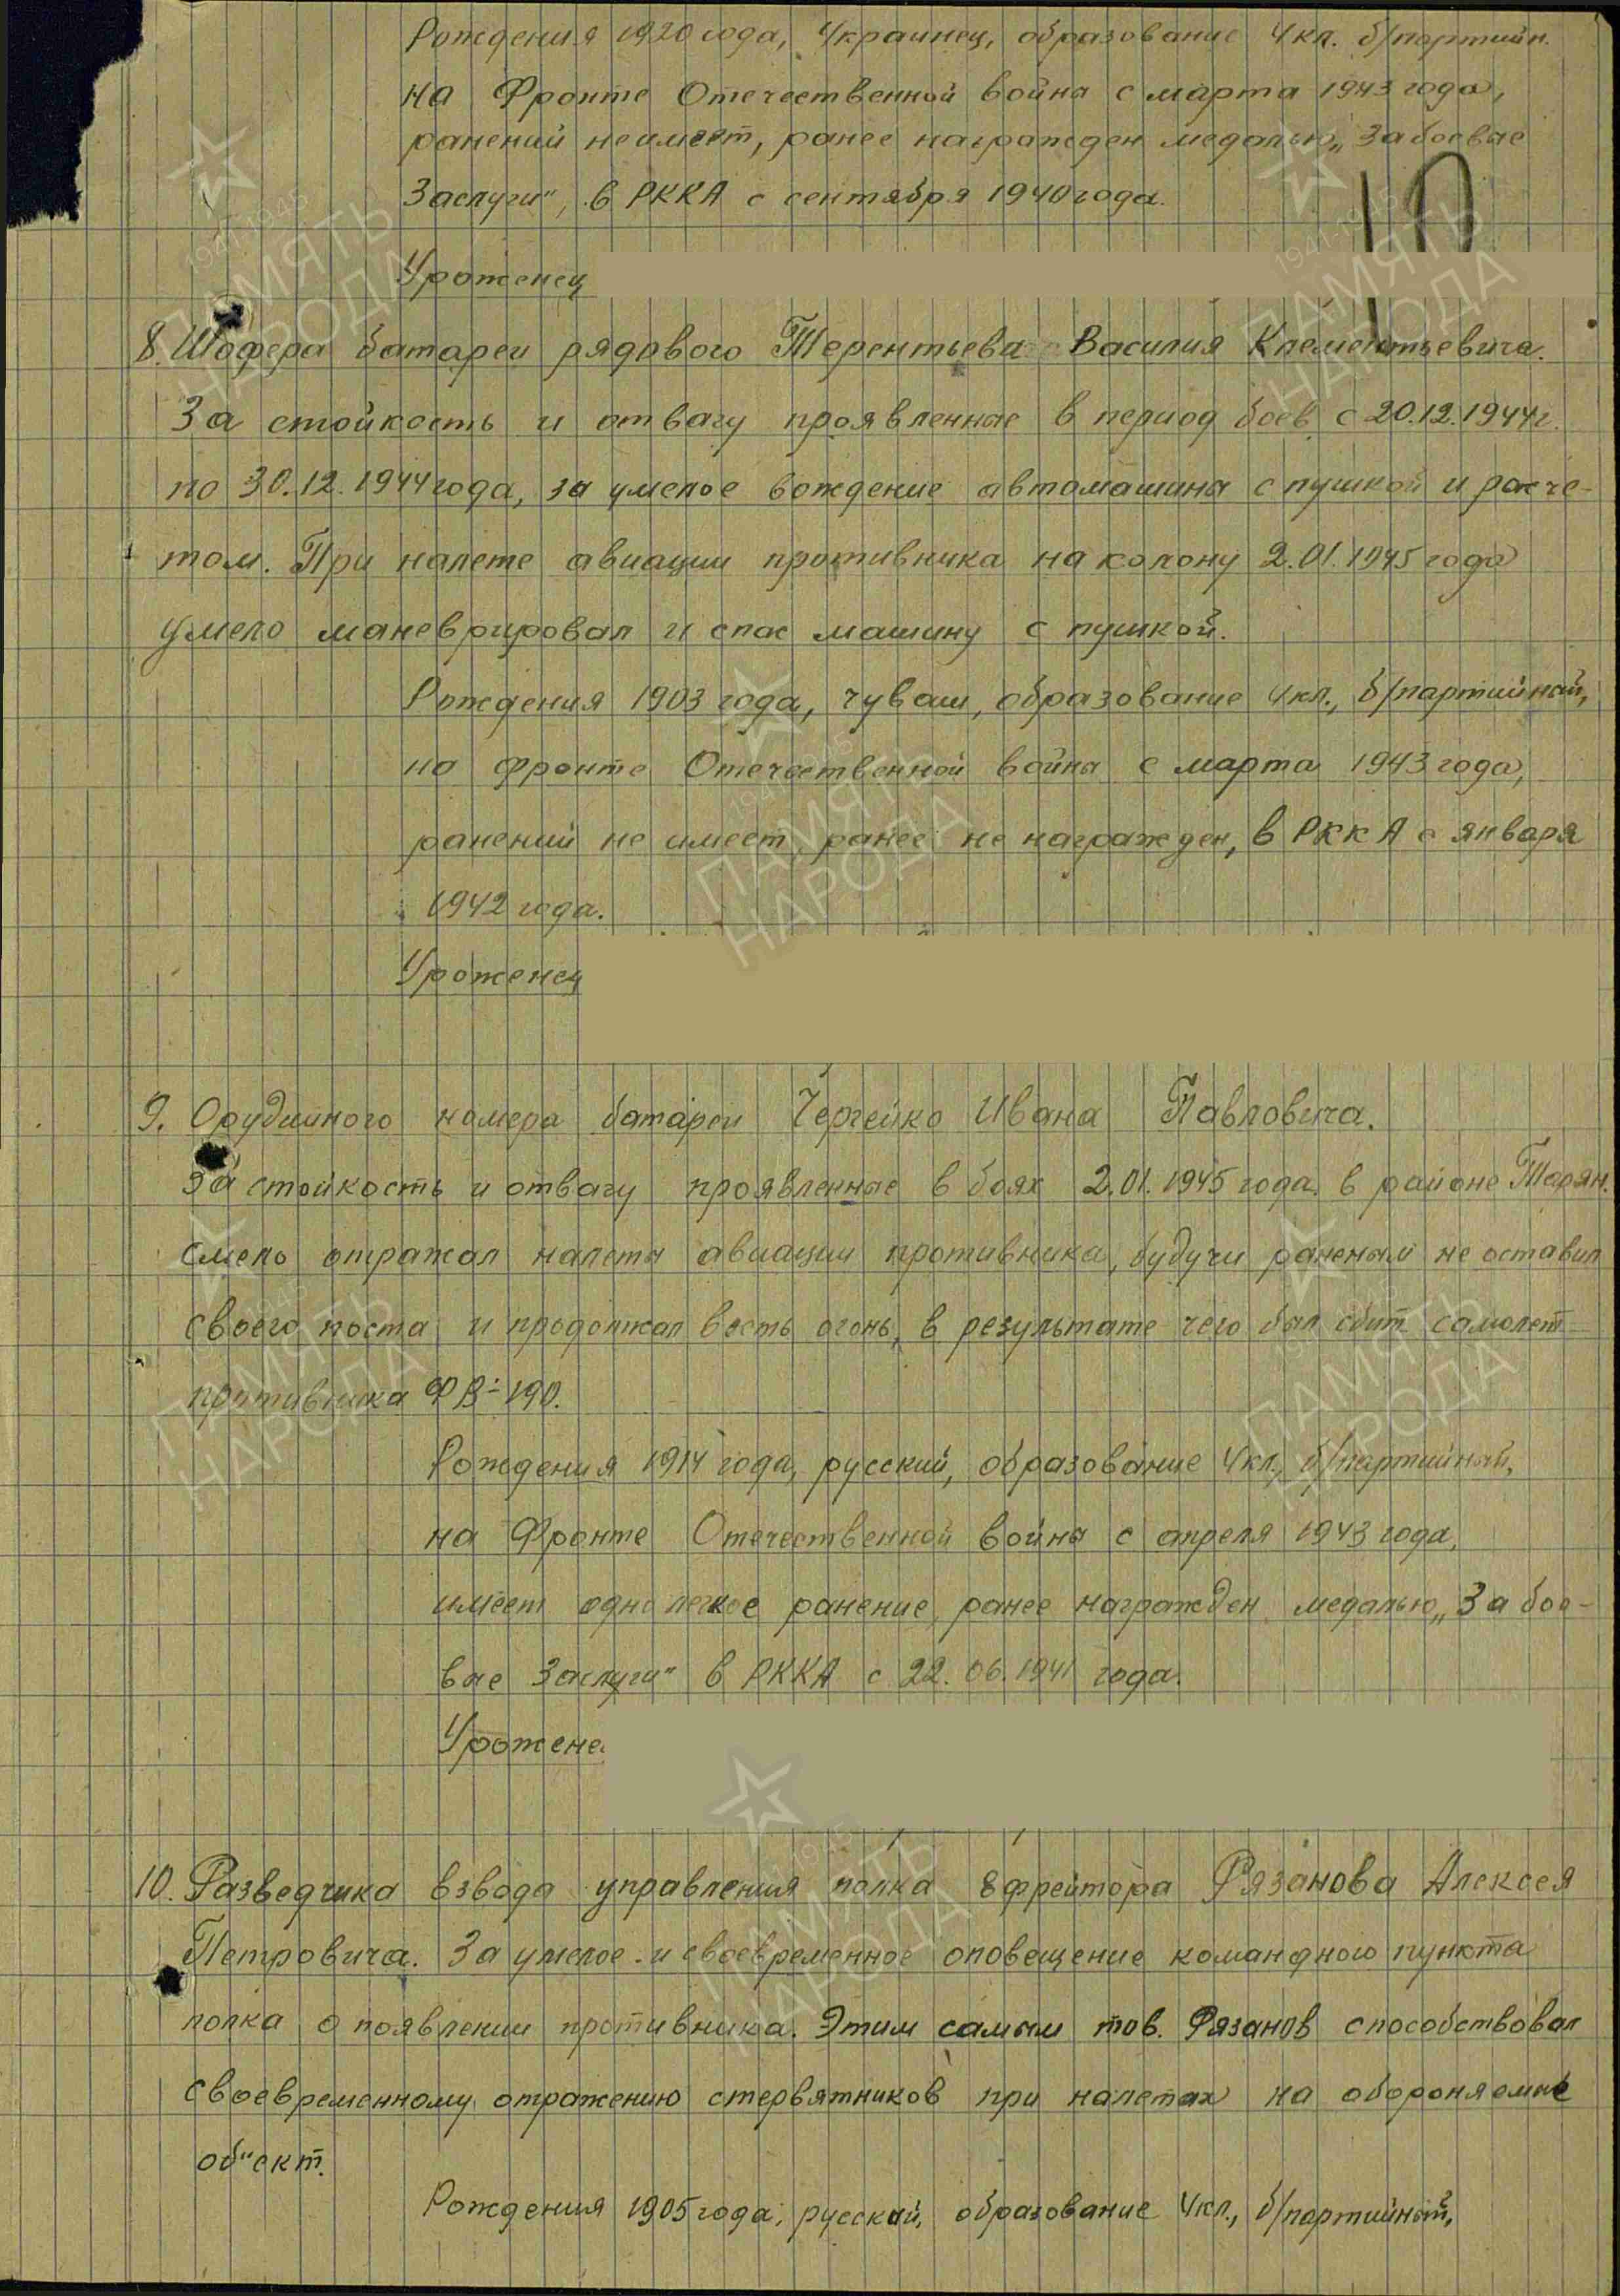 Рождения 1920 года, Украинец, образование 4 кл. б/партийн.
на Фронте Отечественной войны с марта 1943 года,
ранений не имеет, ранее награжден медалью „За боевые
Заслуги", в РККА с сентября 1940 года.
Уроженец
8. Шофера батареи рядового Терентьева Василия Клементьевича.
За стойкость и отвагу проявленные в период боев с 20.12.1944 г.
по 30.12.1944 года, за умелое вождение автомашины с пушкой и расче-
том. При налете авиации противника на колону 2.01.1945 года
умело маневрировал и спас машину с пушкой.
Рождения 1903 года, чуваш, образование 4 кл., б/партийный,
на фронте Отечественной войны с марта 1943 года,
ранений не имеет, ранее не награжден, в РККА с января
1942 года.
Уроженец
9. Орудийного номера батареи Чергейко Ивана Павловича.
За стойкость и отвагу проявленные в боях 2.01.1945 года в районе Тарян.
смело отражал налеты авиации противника, будучи раненым не оставил
своего поста и продолжал весть огонь, в результате чего был сбит самолет
противника ФВ-190.
Рождения 1914 года, русский, образование 4 кл., б/партийный,
на Фронте Отечественной войны с апреля 1943 года,
имеет одно легкое ранение, ранее награжден медалью „За бое-
вые Заслуги" в РККА с 22.06.1941 года.
Уроженец
10. Разведчика взвода управления полка ефрейтора Рязанова Алексея
Петровича. За умелое и своевременное оповещение командного пункта
полка о появлении противника. Этим самым тов. Рязанов способствовал
своевременному отражению стервятников при налетах на обороняемые
об"ект.
Рождения 1905 года, русский, образование 4 кл., б/партийный,